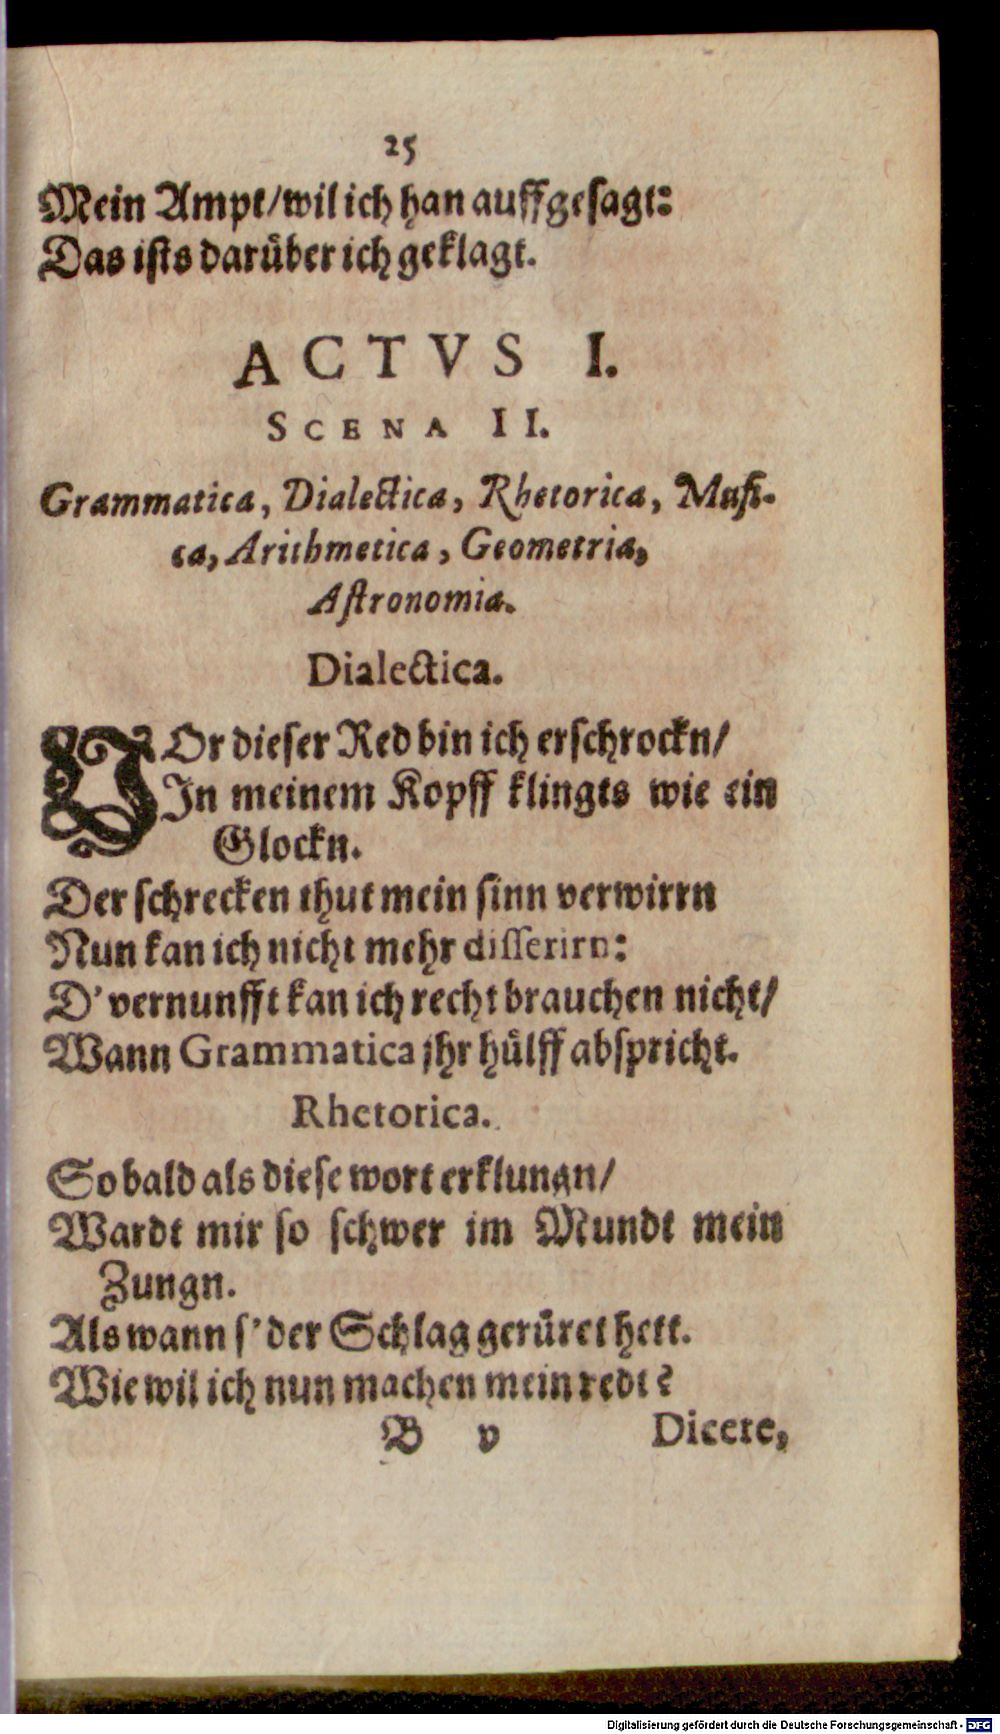 25
Mein Ampt/wil ich han auffgesagt:
Das ists darüber ich geklagt.
ACTVS I.
SCENA II.
Grammatica, Dialectica, Rhetorica, Musi-
ca, Arithmetica, Geometria,
Astronomia.
Dialectica.
VOr dieser Red bin ich erschrockn/
In meinem Kopff klingts wie ein
Glockn.
Der schrecken thut mein sinn verwirrn
Nun kan ich nicht mehr disserirn:
D'vernunfft kan ich recht brauchen nicht/
Wann Grammatica jhr hülff abspricht.
Rhetorica.
So bald als diese wort erklungn/
Wardt mir so schwer im Mundt mein
Zungn.
Als wann s'der Schlag gerüret hett.
Wie wil ich nun machen mein redt?
B v Dicere,
Digitalisierung gefördert durch die Deutsche Forschungsgemeinschaft - DFG